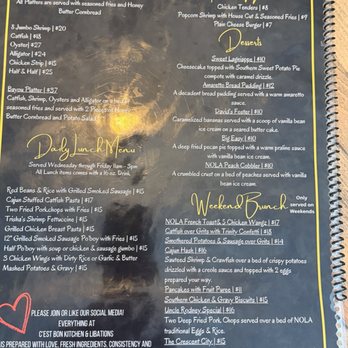 All Platters are served with seasoned fries and Honey
Butter Cornbread
8 Jumbo Shrimp | $20
Catfish | $18
Oyster | $27
Alligator | $24
Chicken Strip | $15
Half & Half | $25
Bayou Platter | $37
Catfish, Shrimp, Oysters and Alligator on a
seasoned fries and served with 2 Pieces of
Butter Cornbread and Potato Salad
Daily Lunch Menu
Served Wednesday through Friday 11am - 3pm
All Lunch items comes with a 16 oz. Drink.
Red Beans & Rice with Grilled Smoked Sausage | $15
Cajun Stuffed Catfish Pasta | $17
Two Fried Porkchops with Fries | $15
Trisha's Shrimp Fettuccini | $15
Grilled Chicken Breast Pasta | $15
12" Grilled Smoked Sausage Po'boy with Fries | $15
Half Po'boy with soup or chicken & sausage gumbo | $15
3 Chicken Wings with Dirty Rice or Garlic & Butter
Mashed Potatoes & Gravy | $15
PLEASE JOIN OR LIKE OUR SOCIAL MEDIA!
EVERYTHING AT
C'EST BON KITCHEN & LIBATIONS
IS PREPARED WITH LOVE, FRESH INGREDIENTS, CONSISTENCY AND
Chicken Tenders | $8
Popcorn Shrimp with House Cut & Seasoned Fries | $9
Plain Cheese Burger | $7
Desserts
Sweet Lagniappe | $10
Cheesecake topped with Southern Sweet Potato Pie
compete with caramel drizzle.
Amaretto Bread Pudding | $12
A decadent bread pudding served with a warm amaretto
sauce.
David's Foster | $10
Caramelized bananas served with a scoop of vanilla bean
ice cream on a seared butter cake.
Big Easy | $10
A deep fried pecan pie topped with a warm praline sauce
with vanilla bean ice cream.
NOLA Peach Cobbler | $10
A crumbled crust on a bed of peaches served with vanilla
bean ice cream.
Weekend Brunch
Only
served on
Weekends
NOLA French Toast & 3 Chicken Wangz | $17
Catfish over Grits with Trinity Confetti | $18
Smothered Potatoes & Sausage over Grits | $14
Cajun Hash | $16
Sauteed Shrimp & Crawfish over a bed of crispy potatoes
drizzled with a creole sauce and topped with 2 eggs
prepared your way.
Pancakes with Fruit Puree | $11
Southern Chicken & Gravy Biscuits | $15
Uncle Rodney Special | $16
Two Deep Fried Pork Chops served over a bed of NOLA
traditional Eggs & Rice.
The Crescent City | $15